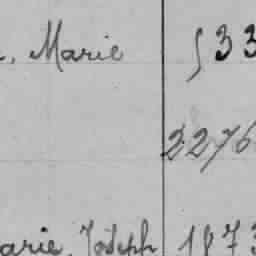 , Marie 533
2276
arie, Joseph 1873